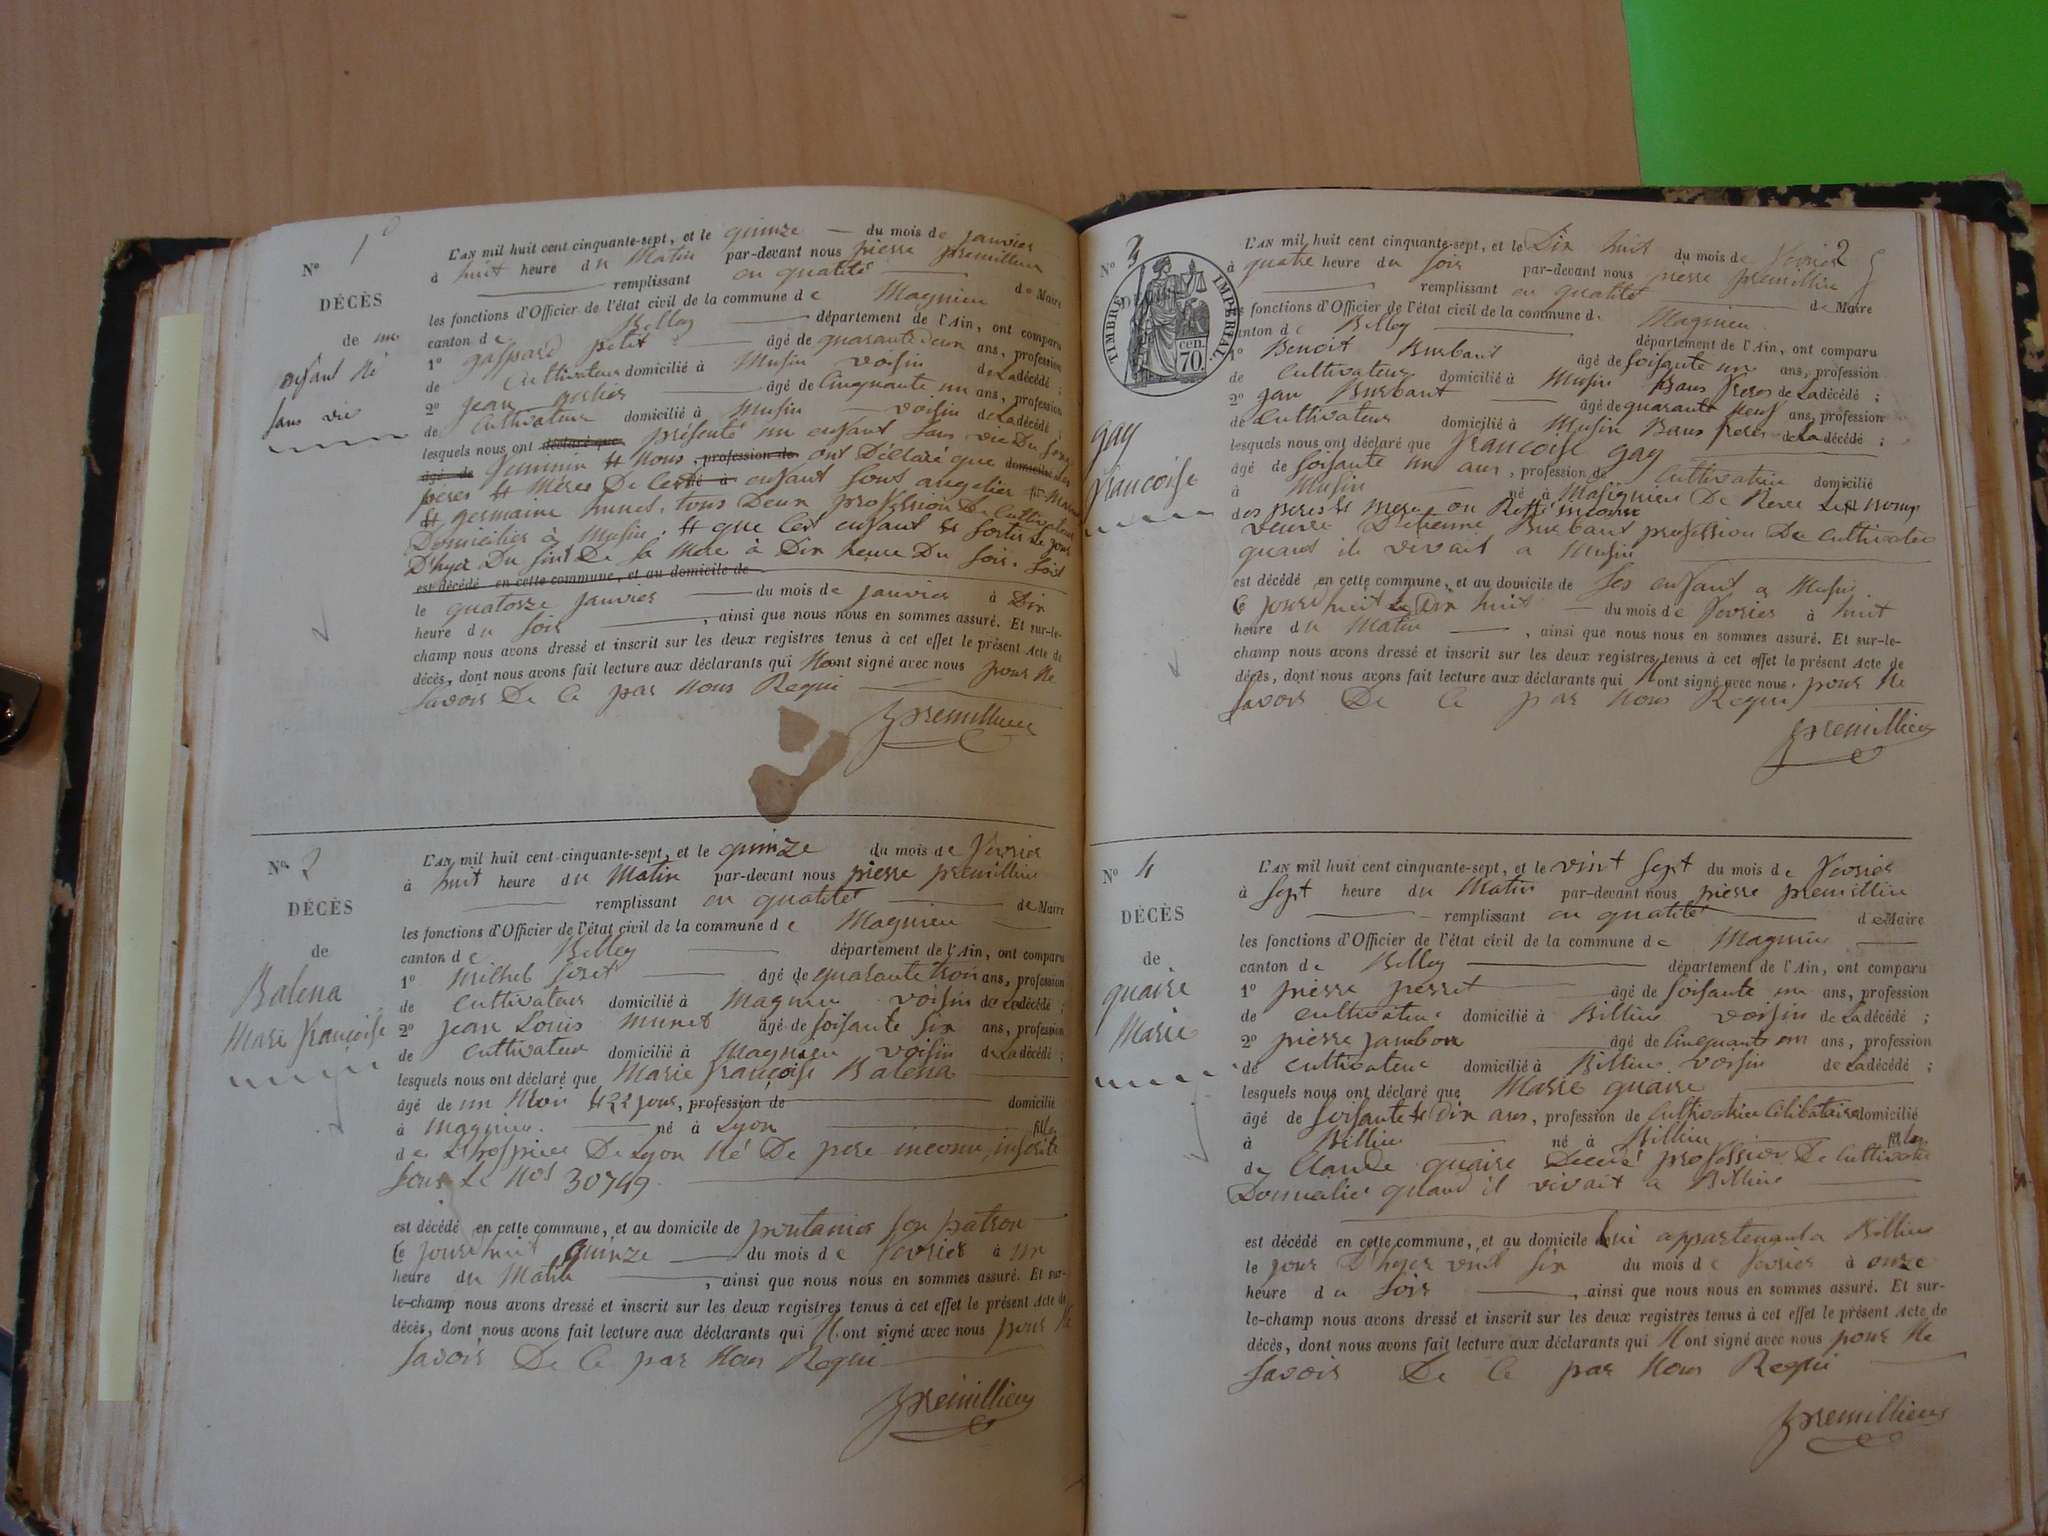 Nº 1
DÉCÈS
de un
enfant né
sans vie
L'AN mil huit cent cinquante-sept, et le quinze du mois de janvier
à huit heure du Matin par-devant nous pierre premillieu
remplissant en qualité de Maire
les fonctions d'Officier de l'état civil de la commune de Magnieu
canton de Belley département de l'Ain, ont comparu
1º gaspard petit âgé de quarante deux ans, profession
de cultivateur domicilié à Musin voisin de La décédé ;
2º jean âgé de Cinquante un ans, profession
de Cultivateur domicilié à Musin voisin de La décédé ;
lesquels nous ont déclaré que présenté un enfant sans vie Du
âgé de feminin Nous, profession de ont Déclaré que domicilié
pères mères De enfant Sons angelier
germaine munet, tous Deux profession De Cultivateur
Domiciliés à Musin. que Cet enfant sortis le jour
D'hyer Du De Sa Mère à Dix heure Du soir.
est décédé en cette commune, et au domicile de
le quatorze janvier du mois de janvier à Dix
heure du soir , ainsi que nous nous en sommes assuré. Et sur-le-
champ nous avons dressé et inscrit sur les deux registres tenus à cet effet le présent Acte de
décès, dont nous avons fait lecture aux déclarants qui N'ont signé avec nous pour Ne
savoir De Ce par Nous Requi
premillieu
Nº 2
DÉCÈS
de
Balena
Marie françoise
L'AN mil huit cent cinquante-sept, et le quinze du mois de Fevrier
à huit heure du Matin par-devant nous pierre premillieu
remplissant en qualité de Maire
les fonctions d'Officier de l'état civil de la commune de Magnieu
canton de Belley département de l'Ain, ont comparu
1º Michel âgé de quarante trois ans, profession
de Cultivateur domicilié à Magnieu voisin de La décédé ;
2º jean Louis munet âgé de soisante six ans, profession
de Cultivateur domicilié à Magnieu voisin de La décédé ;
lesquels nous ont déclaré que Marie françoise Balena
âgé de un Moi 22 jour, profession de domicilié
à Magnieu né à Lyon fille
de L'hospice De Lyon Né De père inconu, inscrite
Sous Le Nos 30749
est décédé en cette commune, et au domicile de pontanier son patron
Ce jourdhuit quinze du mois de Fevrier à un
heure du Matin , ainsi que nous nous en sommes assuré. Et sur-
le-champ nous avons dressé et inscrit sur les deux registres tenus à cet effet le présent Acte de
décès, dont nous avons fait lecture aux déclarants qui N'ont signé avec nous pour Ne
Savoir De Ce par Nous Requi
premillieu
Nº 3
TIMBRE IMPÉRIAL
70 cen.
gay
francoise
L'AN mil huit cent cinquante-sept, et le Dix huit du mois de Fevrier 2
à quatre heure du soir par-devant nous pierre premillieu
remplissant en qualité de Maire
les fonctions d'Officier de l'état civil de la commune de Magnieu
canton de Belley département de l'Ain, ont comparu
1º Benoit Burbant âgé de soisante un ans, profession
de Cultivateur domicilié à Musin Baux freres de La décédé ;
2º jean Burbant âgé de quarante neuf ans, profession
de Cultivateur domicilié à Musin Baux freres de La décédé ;
lesquels nous ont déclaré que francoise gay
âgé de Soisante un ans, profession de Cultivatrice domicilié
à Musin né à Massignieu De Rives
des peres mere on Resté inconu
veuve D'etienne Burbant profession De Cultivateur
quand il vivait a Musin
est décédé en cette commune, et au domicile de ses enfant a Musin
Ce jourdhuit Dix huit du mois de Fevrier à huit
heure du Matin , ainsi que nous nous en sommes assuré. Et sur-le-
champ nous avons dressé et inscrit sur les deux registres tenus à cet effet le présent Acte de
décès, dont nous avons fait lecture aux déclarants qui N'ont signé avec nous pour Ne
Savoir De Ce par Nous Requi
premillieu
Nº 4
DÉCÈS
de
quaire
Marie
L'AN mil huit cent cinquante-sept, et le vint sept du mois de Fevrier
à sept heure du Matin par-devant nous pierre premillieu
remplissant en qualité de Maire
les fonctions d'Officier de l'état civil de la commune de Magnieu
canton de Belley département de l'Ain, ont comparu
1º pierre perret âgé de soisante un ans, profession
de Cultivateur domicilié à Billieu voisin de La décédé ;
2º pierre jambon âgé de Cinquante ans, profession
de Cultivateur domicilié à Billieu voisin de La décédé ;
lesquels nous ont déclaré que Marie quaire
âgé de soisante Dix ans, profession de Cultivatrice Célibataire domicilié
à Billieu né à Billieu fille
de Claude quaire Décédé profession De Cultivateur
Domicilié quand il vivait a Billieu
est décédé en cette commune, et au domicile lui appartenant a Billieu
le jour D'hyer vint six du mois de Fevrier à onze
heure du Soir , ainsi que nous nous en sommes assuré. Et sur-
le-champ nous avons dressé et inscrit sur les deux registres tenus à cet effet le présent Acte de
décès, dont nous avons fait lecture aux déclarants qui N'ont signé avec nous pour Ne
Savoir De Ce par Nous Requi
premillieu